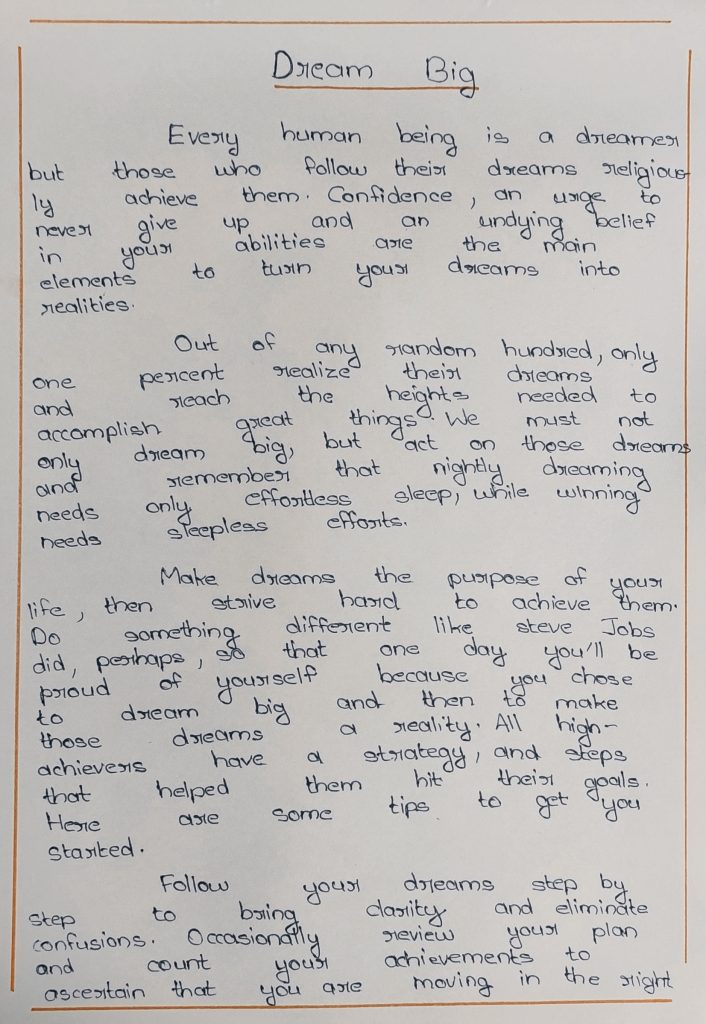 Dream Big
Every human being is a dreamer
but those who follow their dreams religious-
ly achieve them. Confidence, an urge to
never give up and an undying belief
in your abilities are the main
elements to turn your dreams into
realities.
Out of any random hundred, only
one percent realize their dreams
and reach the heights needed to
accomplish great things. We must not
only dream big, but act on those dreams
and remember that nightly dreaming
needs only effortless sleep, while winning
needs sleepless efforts.
Make dreams the purpose of your
life, then strive hard to achieve them.
Do something different like steve Jobs
did, perhaps, so that one day you'll be
proud of yourself because you chose
to dream big and then to make
those dreams a reality. All high-
achievers have a strategy, and steps
that helped them hit their goals.
Here are some tips to get you
started.
Follow your dreams step by
step to bring clarity and eliminate
confusions. Occasionally review your plan
and count your achievements to
ascertain that you are moving in the right